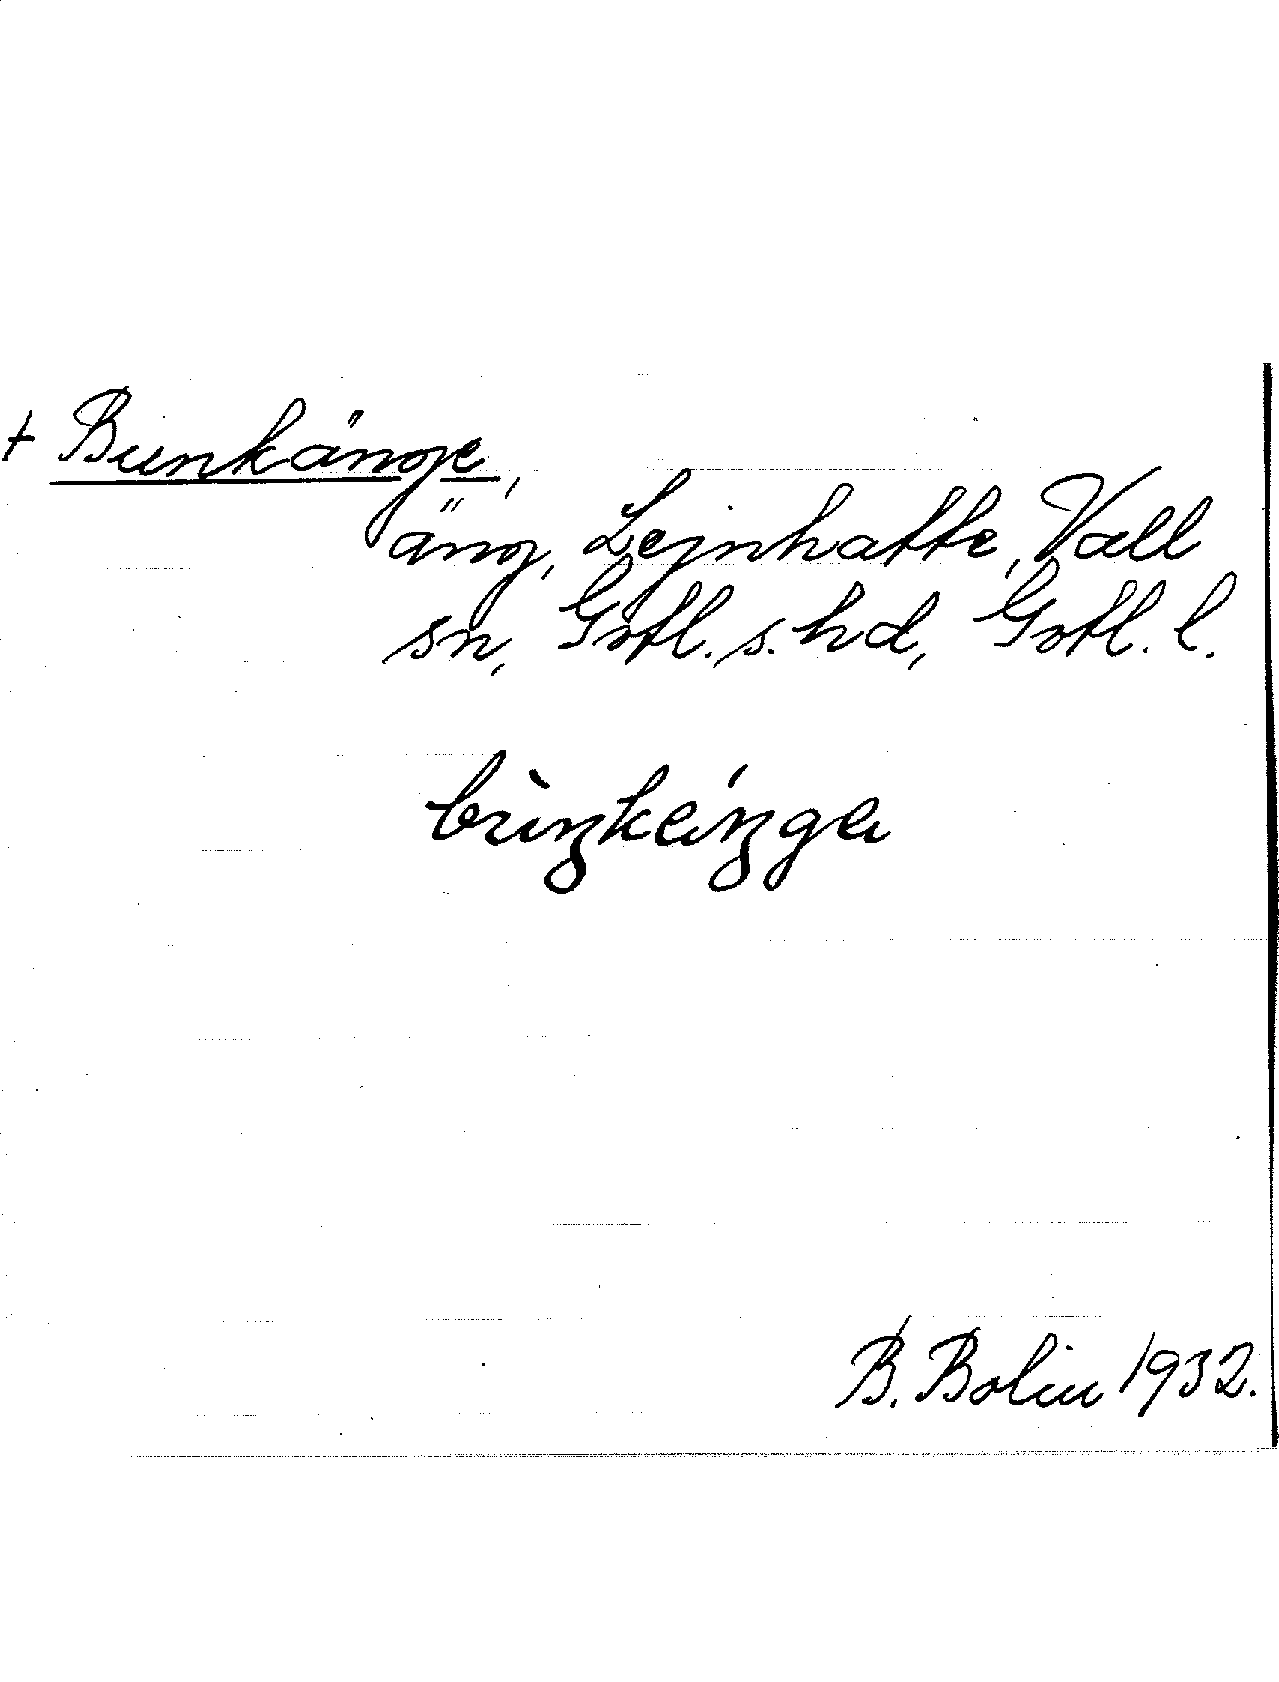 + Bunkänge,
äng, Lejnhatte, Vall
sn, Gotl. s. hd, Gotl. l.
bùŋkéŋga
B. Bolin 1932.